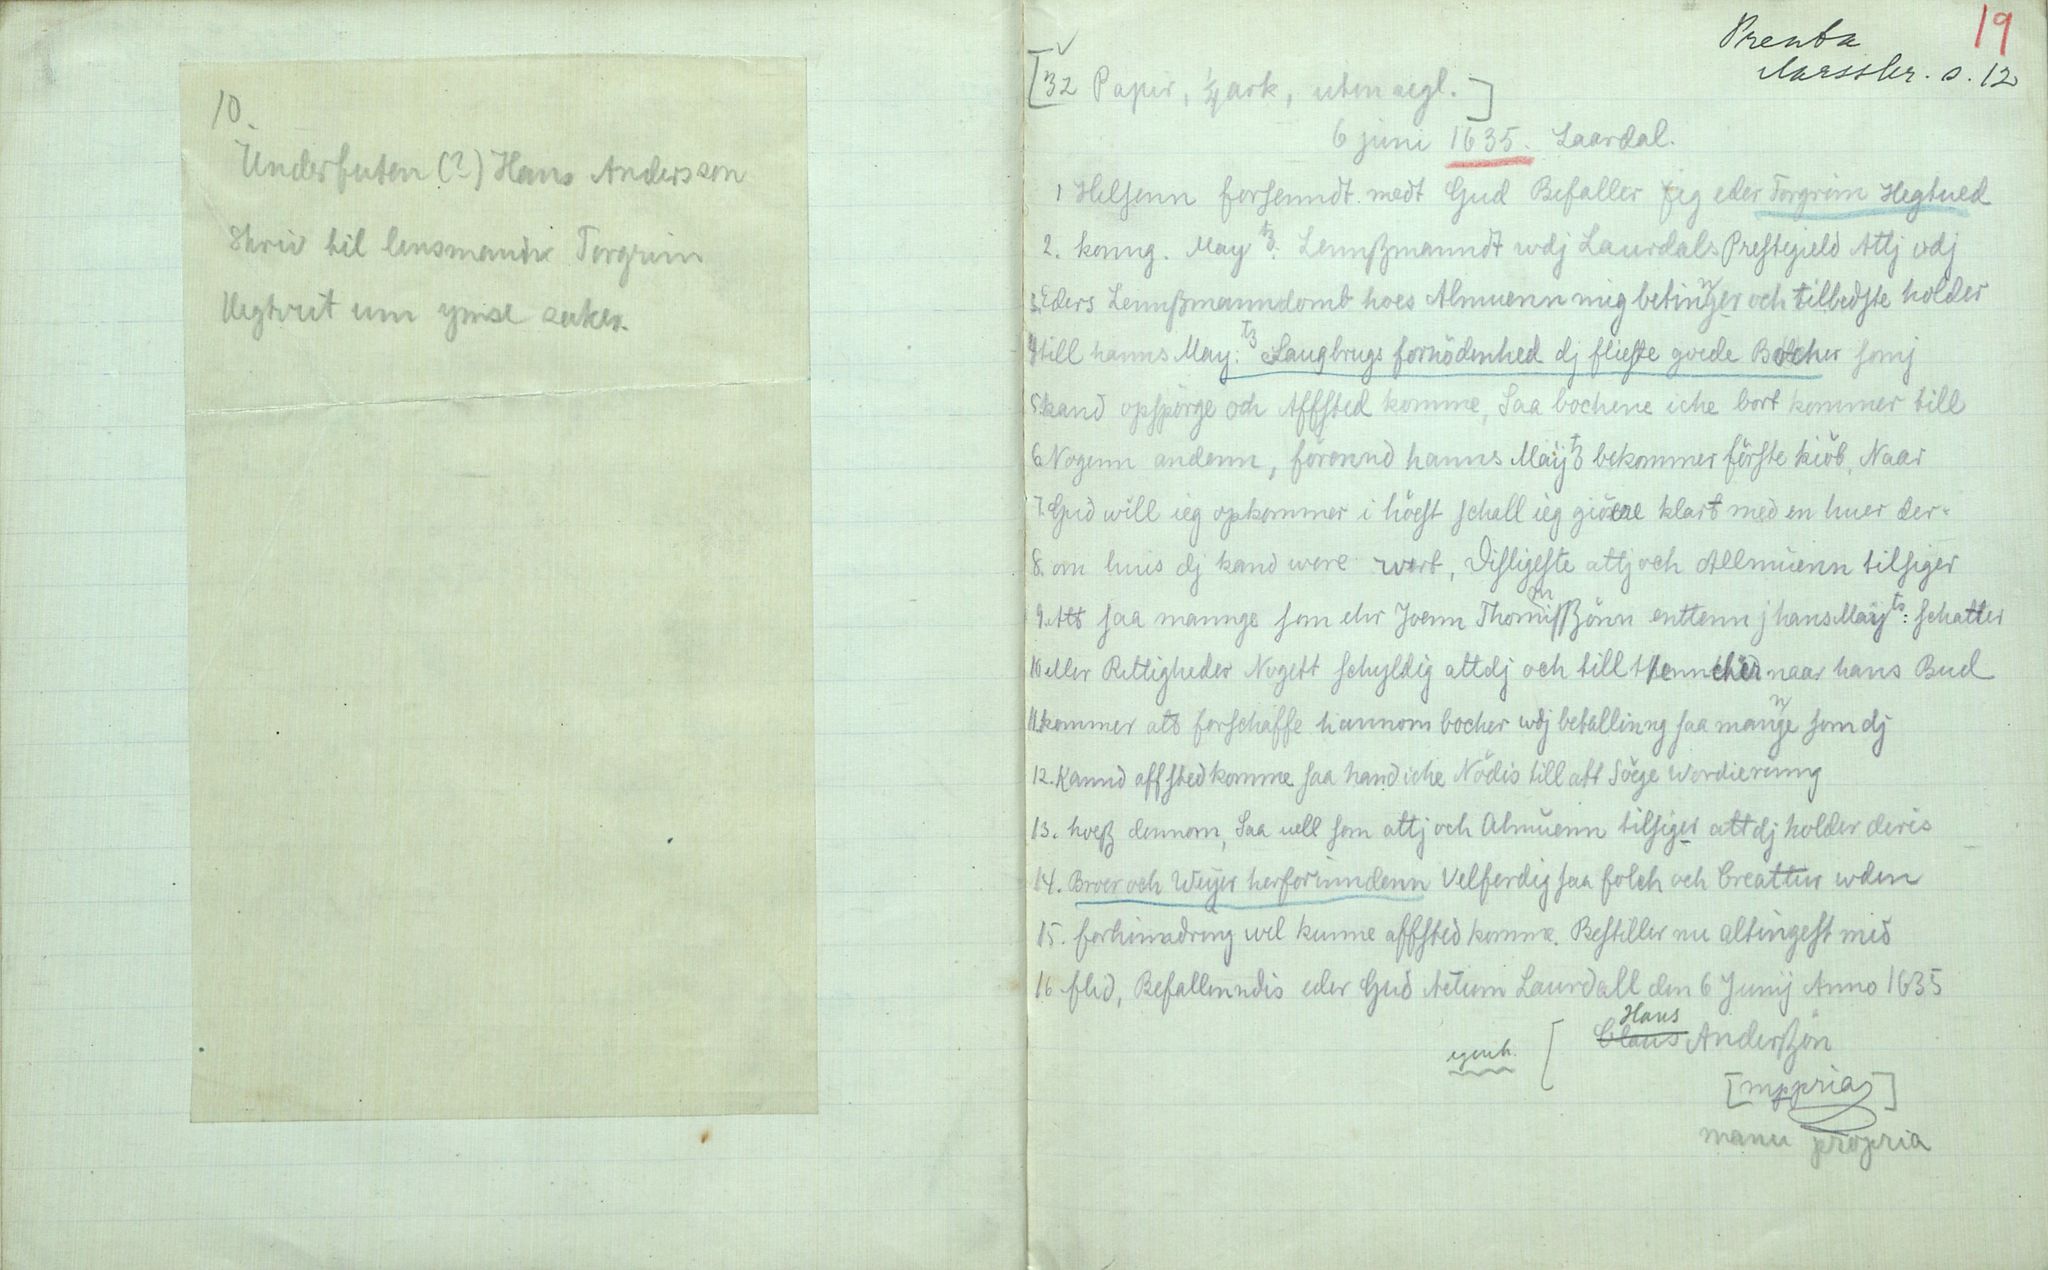 10.
Underfuten (?) Hans Andersson
skriv til lensmandr Torgrim
Hegtveit um ymse saker.
19
Prenta
Aarsskr. s. 12
[32 Papir, ¼ ark, uten segl.]
6 juni 1635. Laardal.
1 Helsenn forsenndt medt Gud Befaller Jeg eder Torgrim Hegtued
2. konng. May tz. Lennßmanndt wdj Laurdals Prestegield Attj vdj
3. Eders Lennßmanndomb hoes Almuenn mig betinnger och tilbedste holder
4 till hanns May: tz Saugbrugs fornödenhed dj flieste goede Botcher somj
5. kand opspörge och Affsted komme, Saa bochene iche bort kommer till
6. Nogenn andenn, förennd hanns Maij tz bekommer förste kiöb, Naar
7. Gud will ieg opkommer i höest schall ieg giöre klart med en huer der-
8. om huis dj kand were wert, Disligeste attj och Allmuenn tilsiger
9. Att saa mannge som ehr Joenn Thommißzönn enttenn j hans Maij ts: schatter
10 eller Rettigheder Nogett schyldig att dj och till thenncher naar hans Bud
11. kommer att forschaffe hannom bocher wdj betallinng saa mannge som dj
12. Kannd affsted komme saa hand iche Nödis till att Söege Wordierúnng
13. hoeß dennom, Saa uell som attj och Almúenn tilsiger att dj holder deris
14. Broer och Weijer herforinndenn Velferdig saa folch och Creattur wden
15. forhinndring wel kunne affsted komme. Bestiller nu altingest med
16 flid, Befallenndis eder Gud Actum Laurdall den 6 Junij Anno 1635
Hans
Claus Anderßön
egenh. [
[mppria]
manu propria